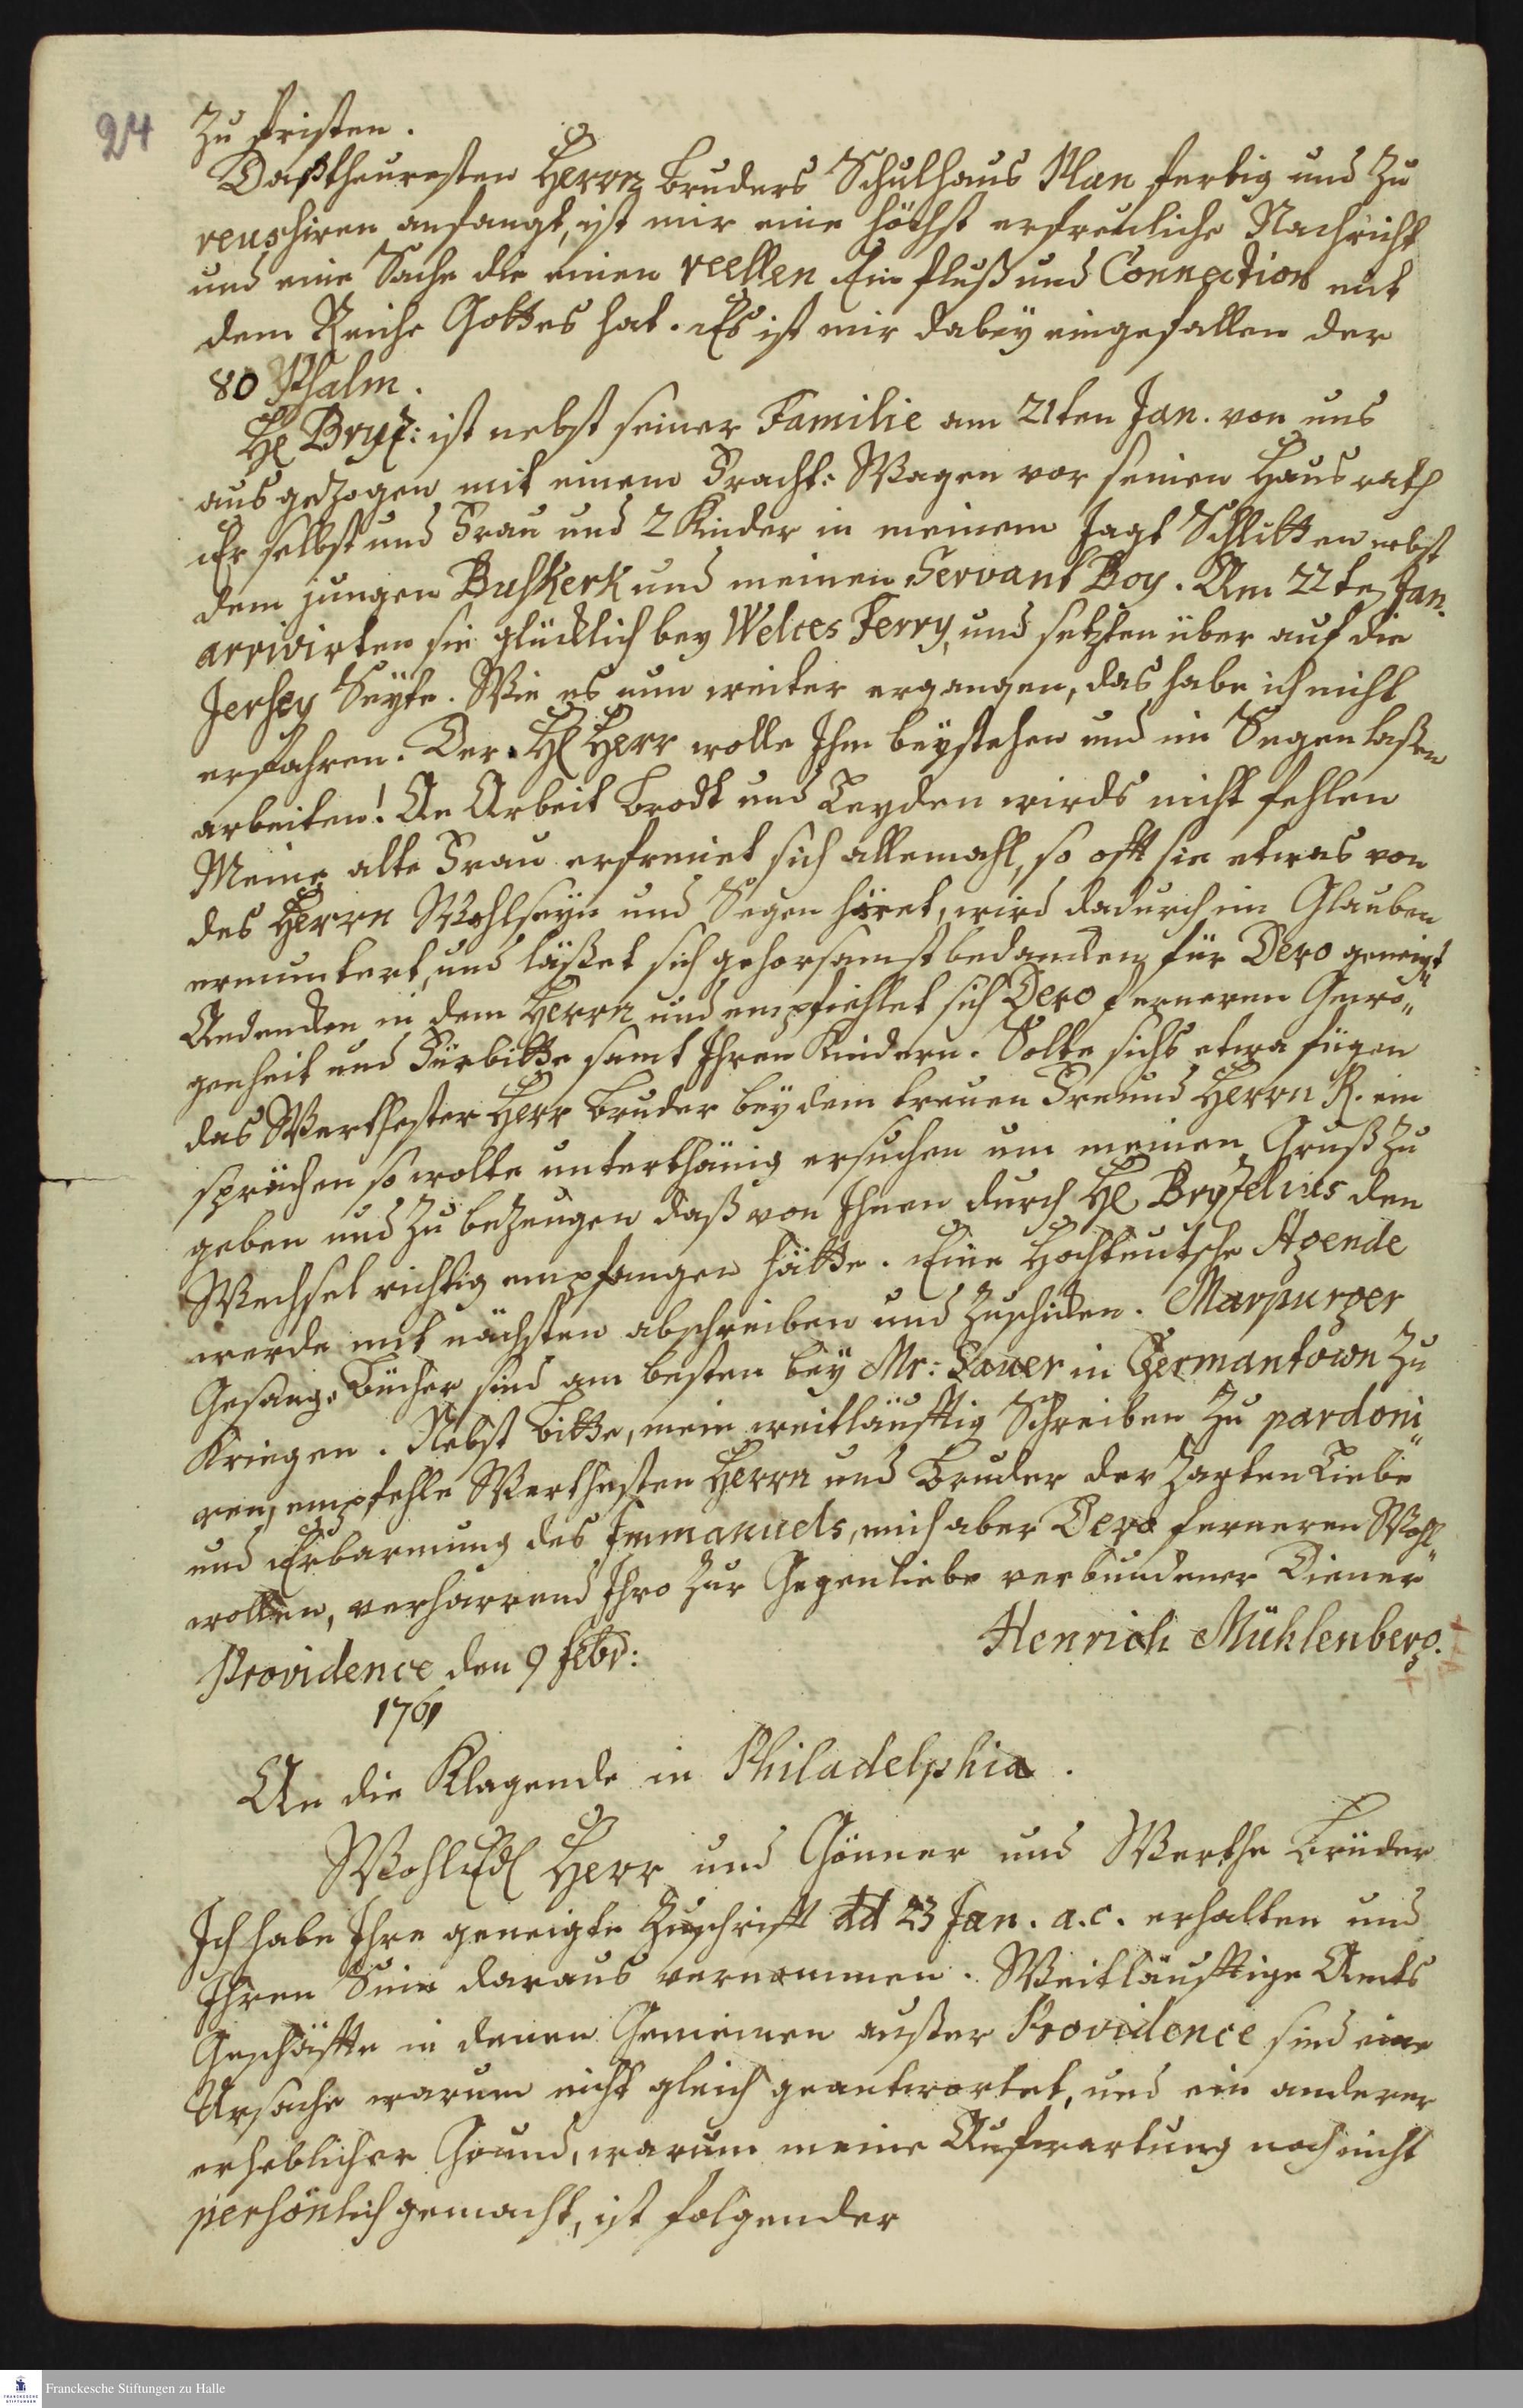 24
zu fristen.
Daß theuresten Herrn Bruders Schulhaus Plan fertig und zu
reuschiren anfangt, ist mir eine höchst erfreuliche Nachricht
und eine Sache die einen reellen Einfluß und Connection mit
dem Reiche Gottes hat. Es ist mir dabey eingefallen der
80 Psalm.
H Bryz: ist nebst seiner Familie am 21ten Jan. von uns
ausgezogen mit einem Fracht-Wagen vor seinen Hausrath
Er selbst und Frau und 2 Kinder in meinem Jagt Schlitten nebst
dem jungen Buskerk und meinen Servant Boy. Am 22ten Jan.
arrivirten sie glücklich bey Welces Ferry, und setzten über auf die
Jersey Seyte. Wie es nun weiter ergangen, das habe ich nicht
erfahren. Der H Herr wolle Ihm beystehen und im Segen laßen
arbeiten! An Arbeit Brodt und Leyden wirds nicht fehlen
Meine alte Frau erfreuet sich allemahl, so oft sie etwas von
des Herrn Wohlseyn und Segen höret, wird dadurch im Glauben
ermuntert, und läßet sich gehorsamst bedancken für Dero geneigt
Andencken in dem Herrn und empfiehlet sich Dero ferneren Gewo„
genheit und Fürbitte samt Ihren Kindern. Solte sichs etwa fügen
das Werthester Herr Bruder bey dem treuen Freund Herrn R. ein
sprächen so wolte unterthänig ersuchen um meinen Gruß zu
geben und zu bezeugen daß von Ihnen durch H Bryzelius den
Wechsel richtig empfangen hätte. Eine Hochteutsche Agende
werde mit nächsten abschreiben und zuschicken. Marpurger
Gesang-Bücher sind am besten bey Mr: Sauer in Germantown zu
Kriegen. Nebst Bitte, mein weitläuftig Schreiben zu pardoni„
ren, empfehle Werthesten Herrn und Bruder der Zarten Liebe
und Erbarmung des Immanuels, mich aber Dero ferneren Wohl„
wollen, verharrend Ihro zur Gegenliebe verbundener Diener
Henrich Mühlenberg.
Providence den 9 Febr:
1761
An die Klagende in Philadelphia.
WohlEdl Herr und Gönner und Werthe Brüder
Ich habe Ihre geneigte Zuschrift dd 23 Jan. a.c. erhalten und
Ihren Sinn daraus vernommen. Weitläuftige Amts
Geschäfte in denen Gemeinen außer Providence sind eine
Ursache warum nicht gleich geantwortet, und ein anderer
erheblicher Grund, warum meine Aufwartung noch nicht
persönlich gemacht, ist folgender
Franckesche Stiftungen zu Halle
FRANCKESCHE STIFTUNGEN